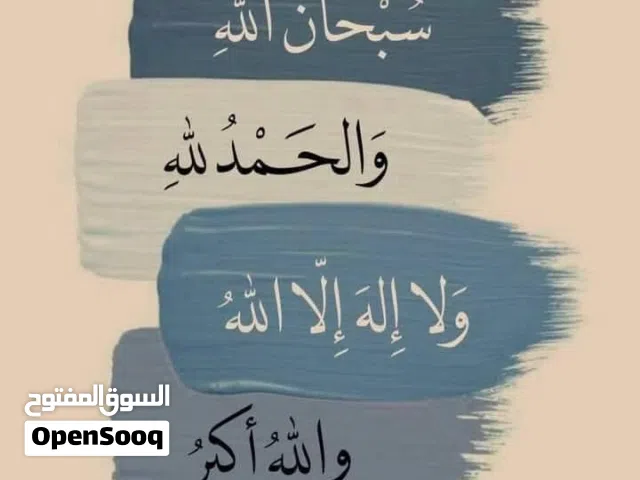 سُبْحَان اللّٰهِ
وَالحَمْدُ للهِ
وَلا إِلهَ إِلّا اللهُ
واللهُ أكبرُ
السوق المفتوح
OpenSooq